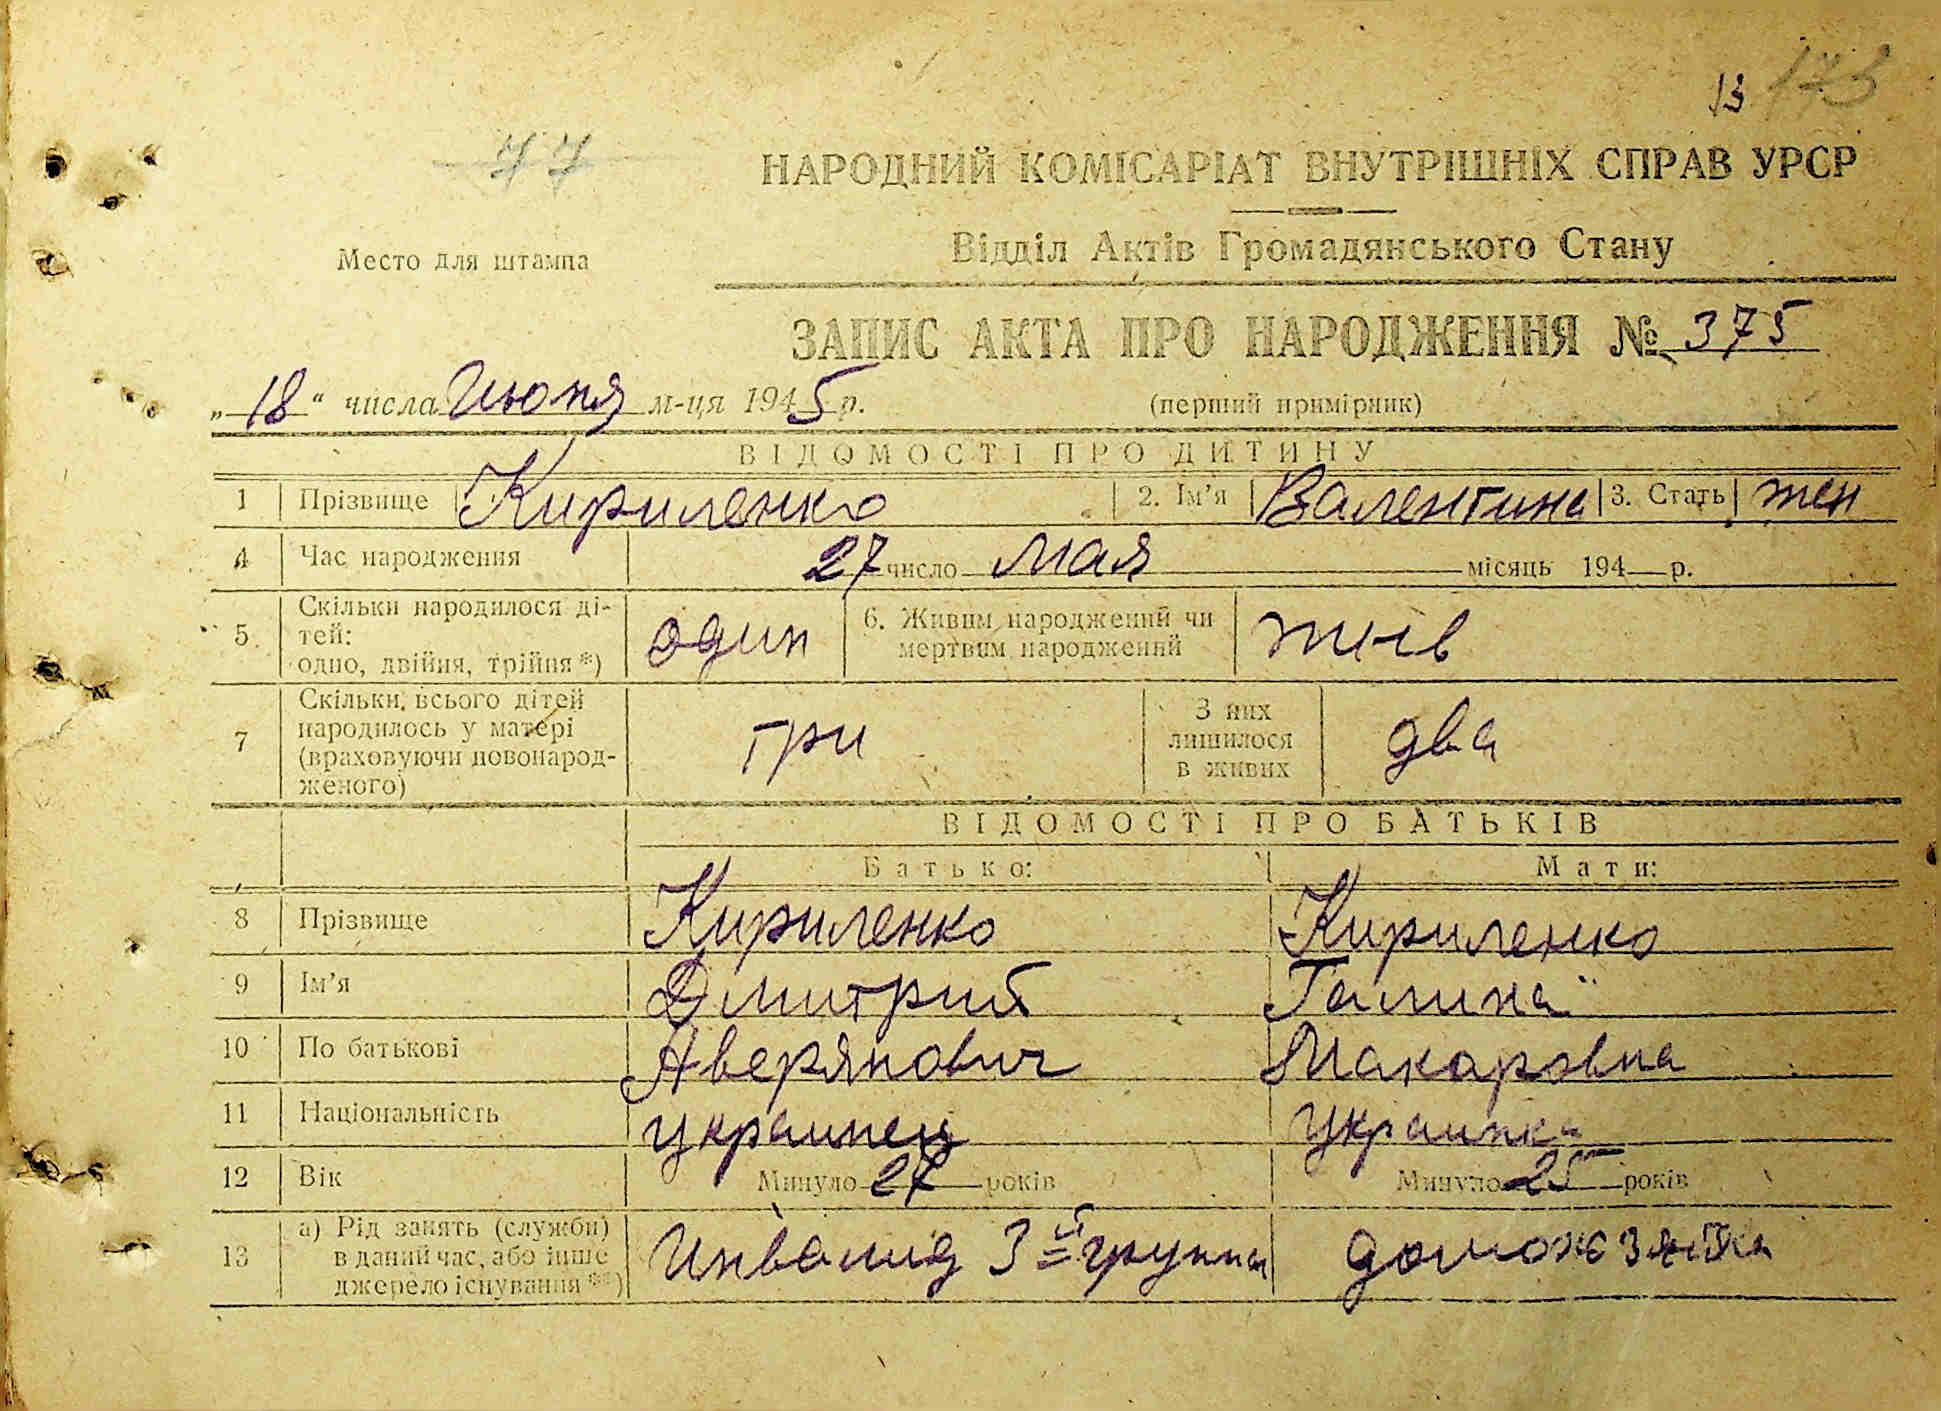 13 173
77
НАРОДНИЙ КОМІСАРІАТ ВНУТРІШНІХ СПРАВ УРСР
Відділ Актів Громадянського Стану
Место для штампа
ЗАПИС АКТА ПРО НАРОДЖЕННЯ № 375
„18“ числа Июня м-ця 1945 р. (перший примірник)
ВІДОМОСТІ ПРО ДИТИНУ
1 Прізвище Кириленко 2. Ім’я Валентина 3. Стать жен
4 Час народження 27 число мая місяць 194 р.
5 Скільки народилося ді-
тей:
одно, двійня, трійня *) один 6. Живим народжений чи
мертвим народжений жив
7 Скільки всього дітей
народилось у матері
(враховуючи новонарод-
женого) три З них
лишилося
в живих два
ВІДОМОСТІ ПРО БАТЬКІВ
Батько: Мати:
8 Прізвище Кириленко Кириленко
9 Ім’я Дмитрий Галина
10 По батькові Аверянович Макаровна
11 Національність украинец украинка
12 Вік Минуло 27 років Минуло 25 років
13 а) Рід занять (служби)
в даний час, або інше
джерело існування **) Инвалид 3й группы